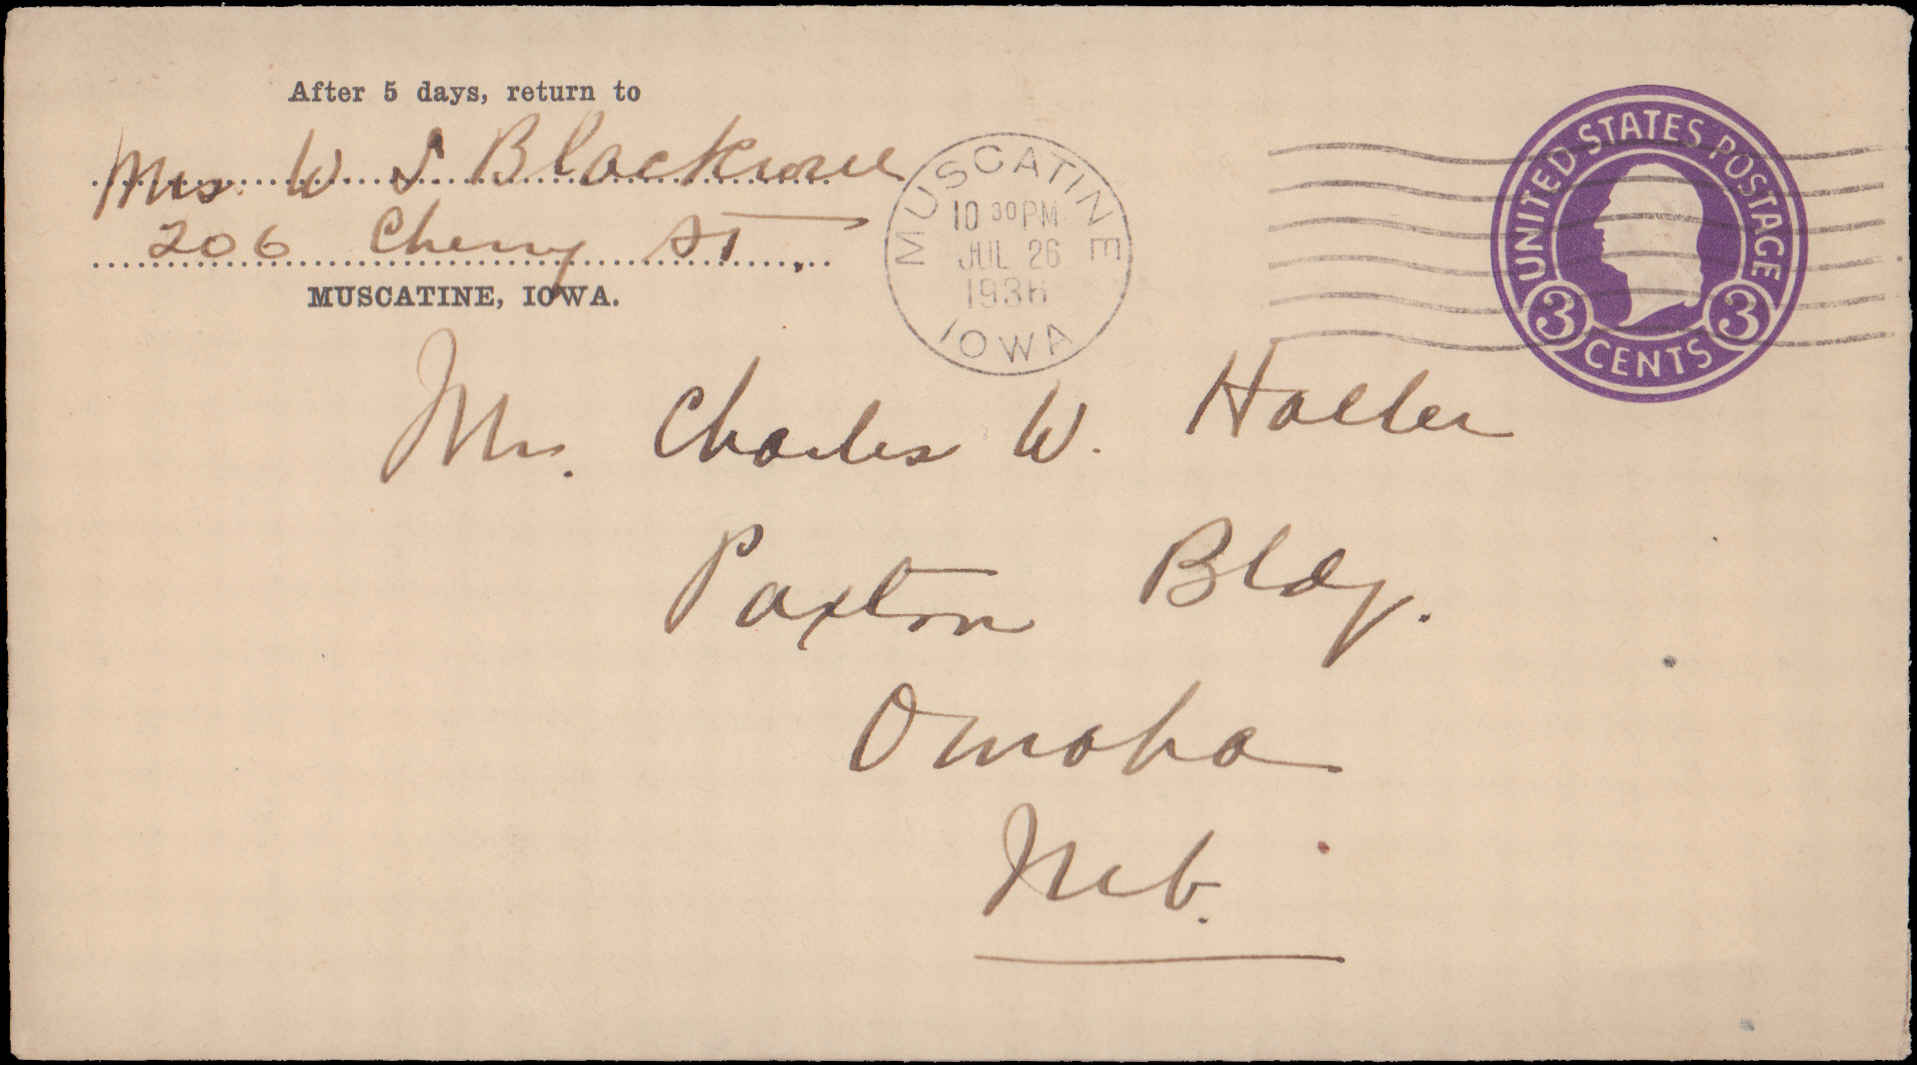 After 5 days, return to
Mrs. W S
206 Cherry St.
MUSCATINE, IOWA.
MUSCATINE
10 30 PM
JUL 26
1936
IOWA
UNITED STATES POSTAGE
3 3
CENTS
Mr. Charles W. Haller
Paxton Bldg.
Omaha
Neb.